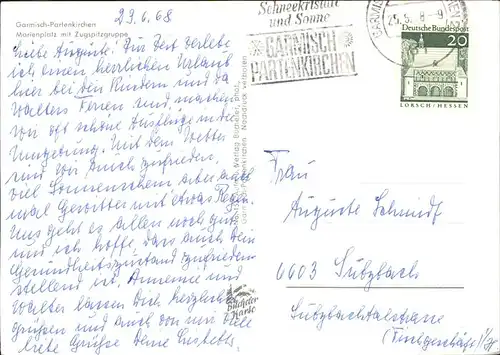 Garmisch-Partenkirchen
Marienplatz mit Zugspitzgruppe
23.6.68
Liebe Auguste! Zur Zeit verlebe
ich einen herrlichen Urlaub
hier bei den Kindern und da
Walters Ferien sind, machen
wir oft schöne Ausflüge in der
Umgebung. Mit dem Wetter
sind wir auch zufrieden,
viel Sonnenschein, aber auch
mal Gewitter mit etwas Regen.
Uns geht es allen noch gut
und ich hoffe, dass auch Dein
Gesundheitszustand zufrieden-
stellend ist. Annemie und
Walter lassen Dich herzlich
grüßen und auch von mir viele
liebe Grüße Deine
Schneekristall
und Sonne
GARMISCH
PARTENKIRCHEN
Deutsche Bundespost
20
LORSCH/HESSEN
Frau
Auguste Schmidt
6603 Sulzbach
Sulzbachtalstrasse